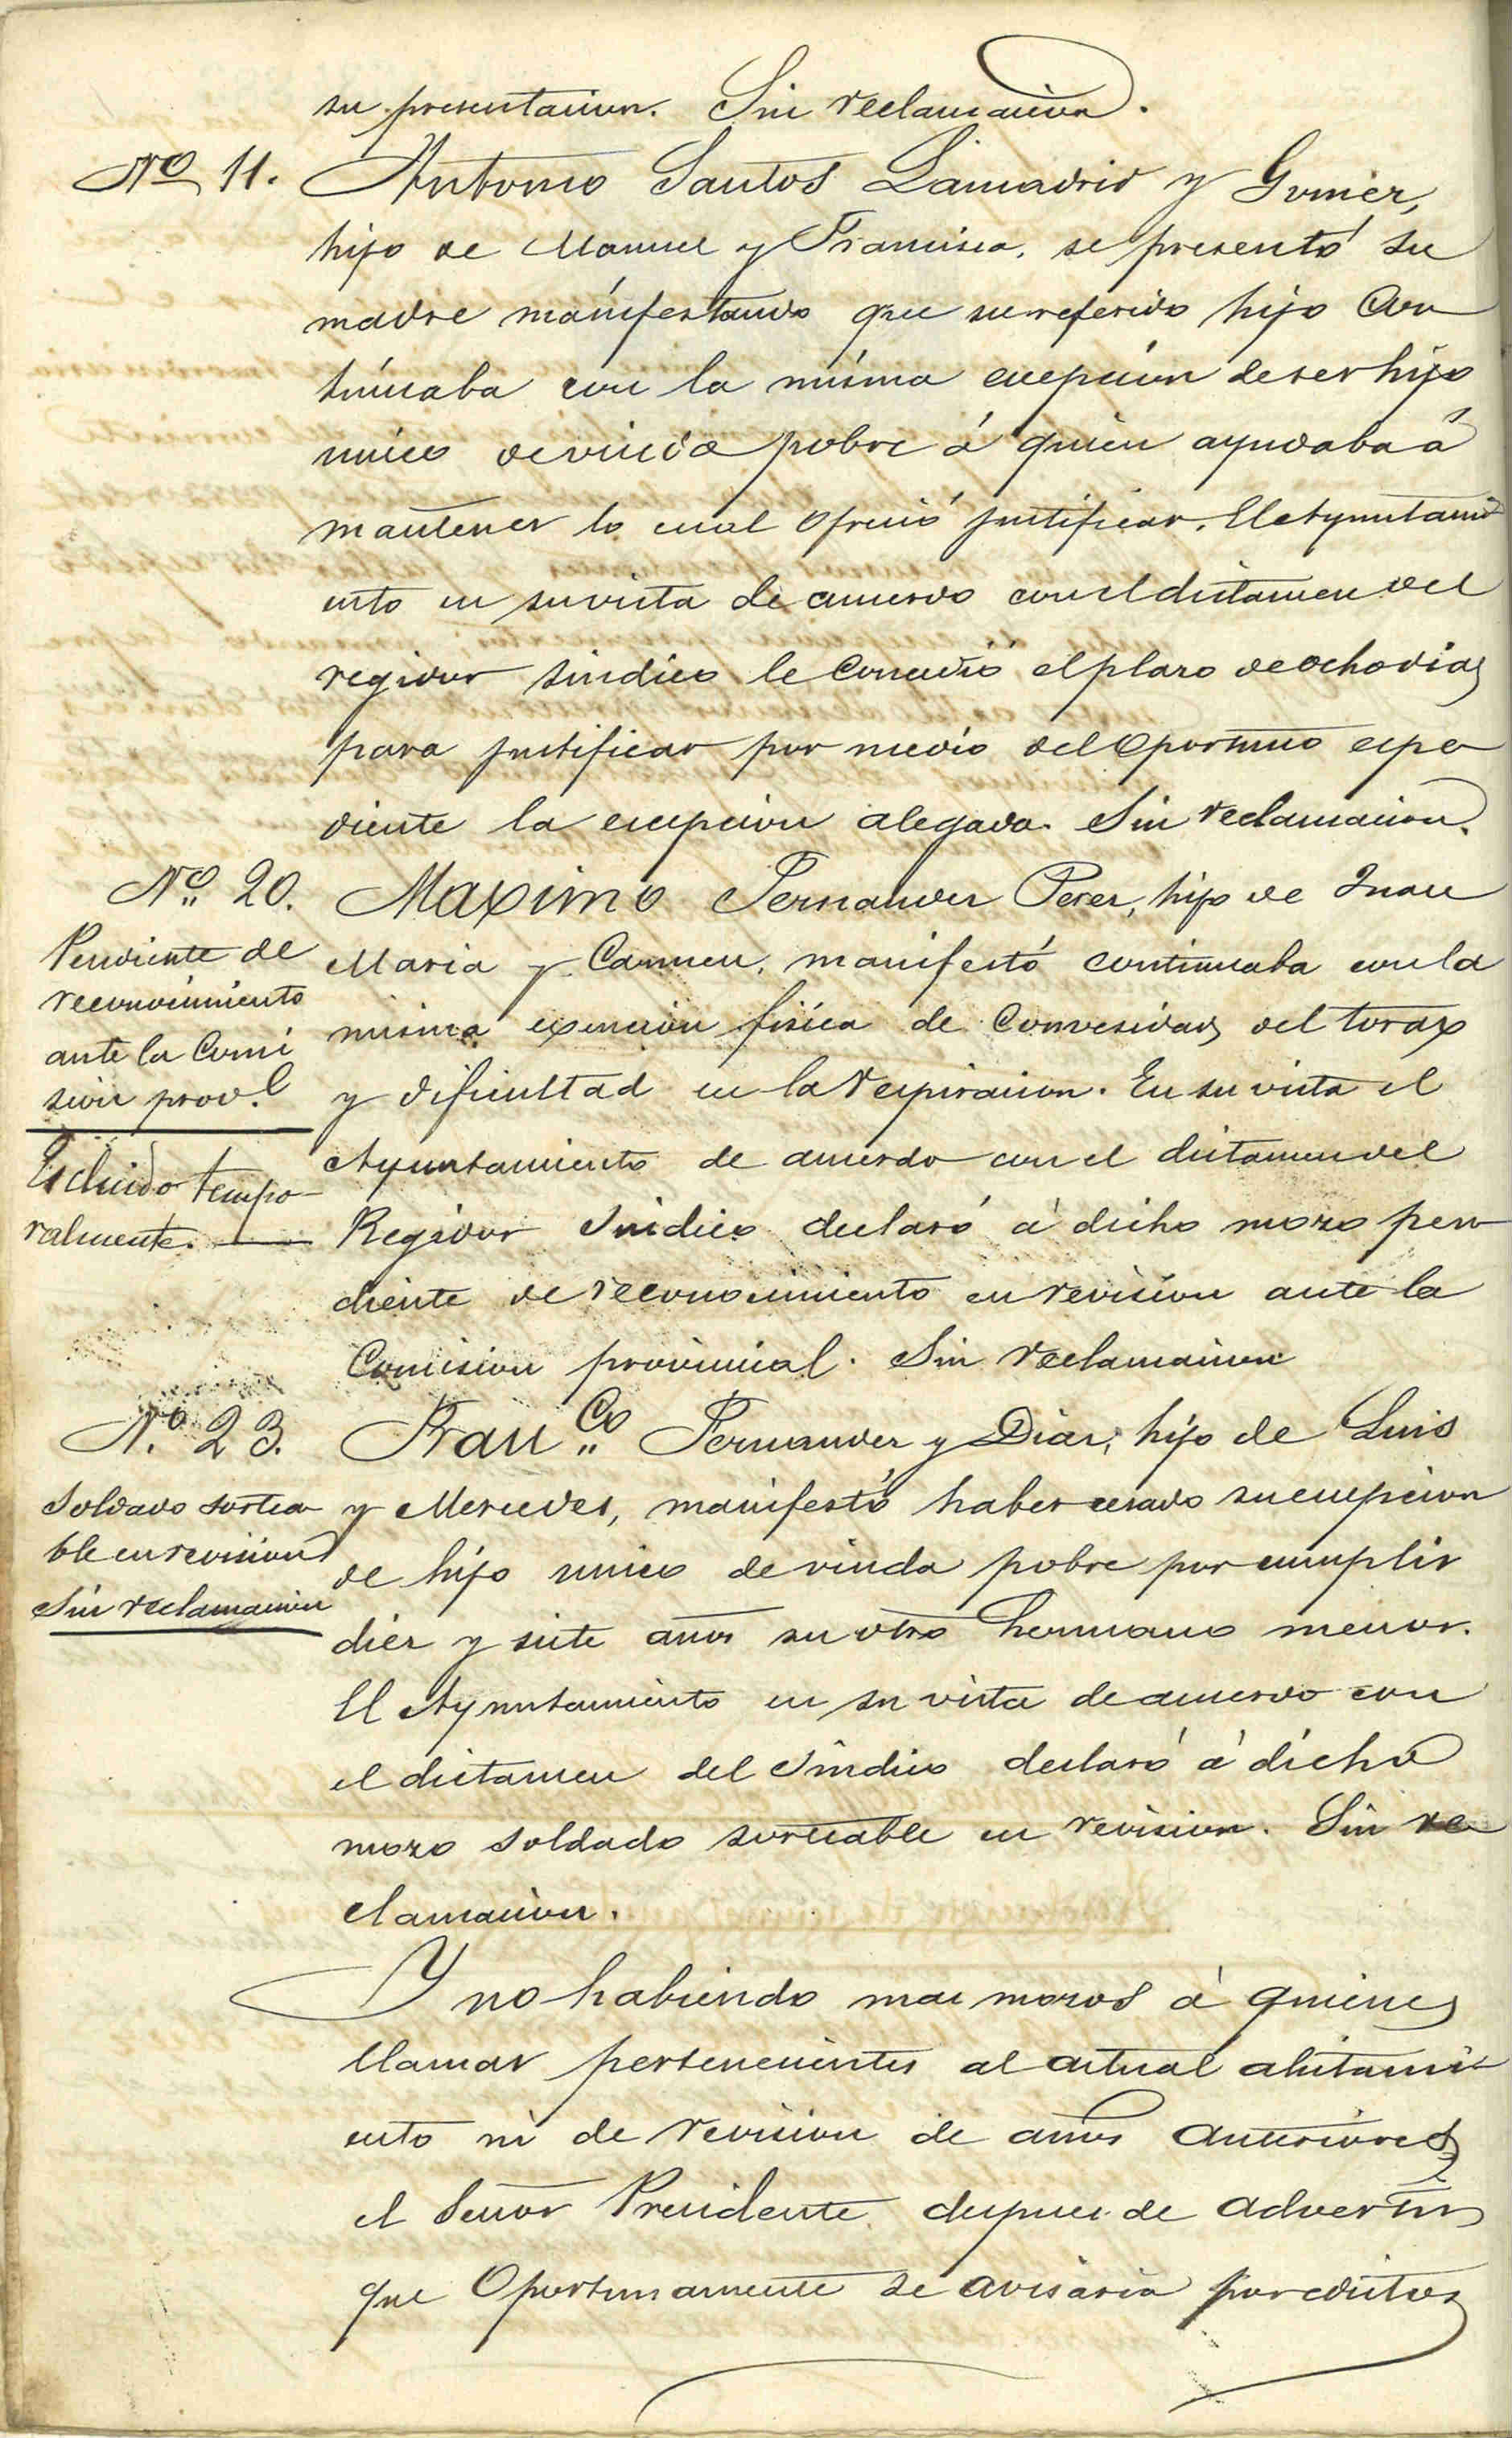 su presentacion. Sin reclamacion.
Nº 11. Antonio Santos Lamadrid y Gomez,
hijo de Manuel y Francisca, se presentó su
madre manifestando que su referido hijo con
tinuaba con la misma excepcion de ser hijo
unico de viuda pobre á quien ayudaba á
mantener lo cual ofreció justificar. El Ayuntami
ento en su vista de acuerdo con el dictamen del
regidor sindico le concedió el plazo de ocho dias
para justificar por medio del oportuno espe
diente la excepcion alegada. Sin reclamacion.
Nº 20. Maximo Fernandez Perez, hijo de Juan
Pendiente de
reconocimiento
ante la Comi
sion prov.l
Escluido tempo
ralmente.
Maria y Carmen, manifestó continuaba con la
misma exencion fisica de convesidad del torax
y dificultad en la respiracion. En su vista el
Ayuntamiento de acuerdo con el dictamen del
Regidor Sindico declaró á dicho mozo pen
diente de reconocimiento en revision ante la
Comision provincial. Sin reclamacion
N.º 23. Fran.co Fernandez y Diaz, hijo de Luis
Soldado sortea
ble en revision
Sin reclamacion
y Mercedes, manifestó haber cesado su excepcion
de hijo unico de viuda pobre por cumplir
diez y siete años su otro hermano menor.
El Ayuntamiento en su vista de acuerdo con
el dictamen del Sindico declaró á dicho
mozo soldado sorteable en revision. Sin re
clamacion.
Y no habiendo mas mozos á quienes
llamar pertenecientes al actual alistami
ento ni de revision de años anteriores
el Señor Presidente, despues de advertir
que oportunamente se avisaria por edictos